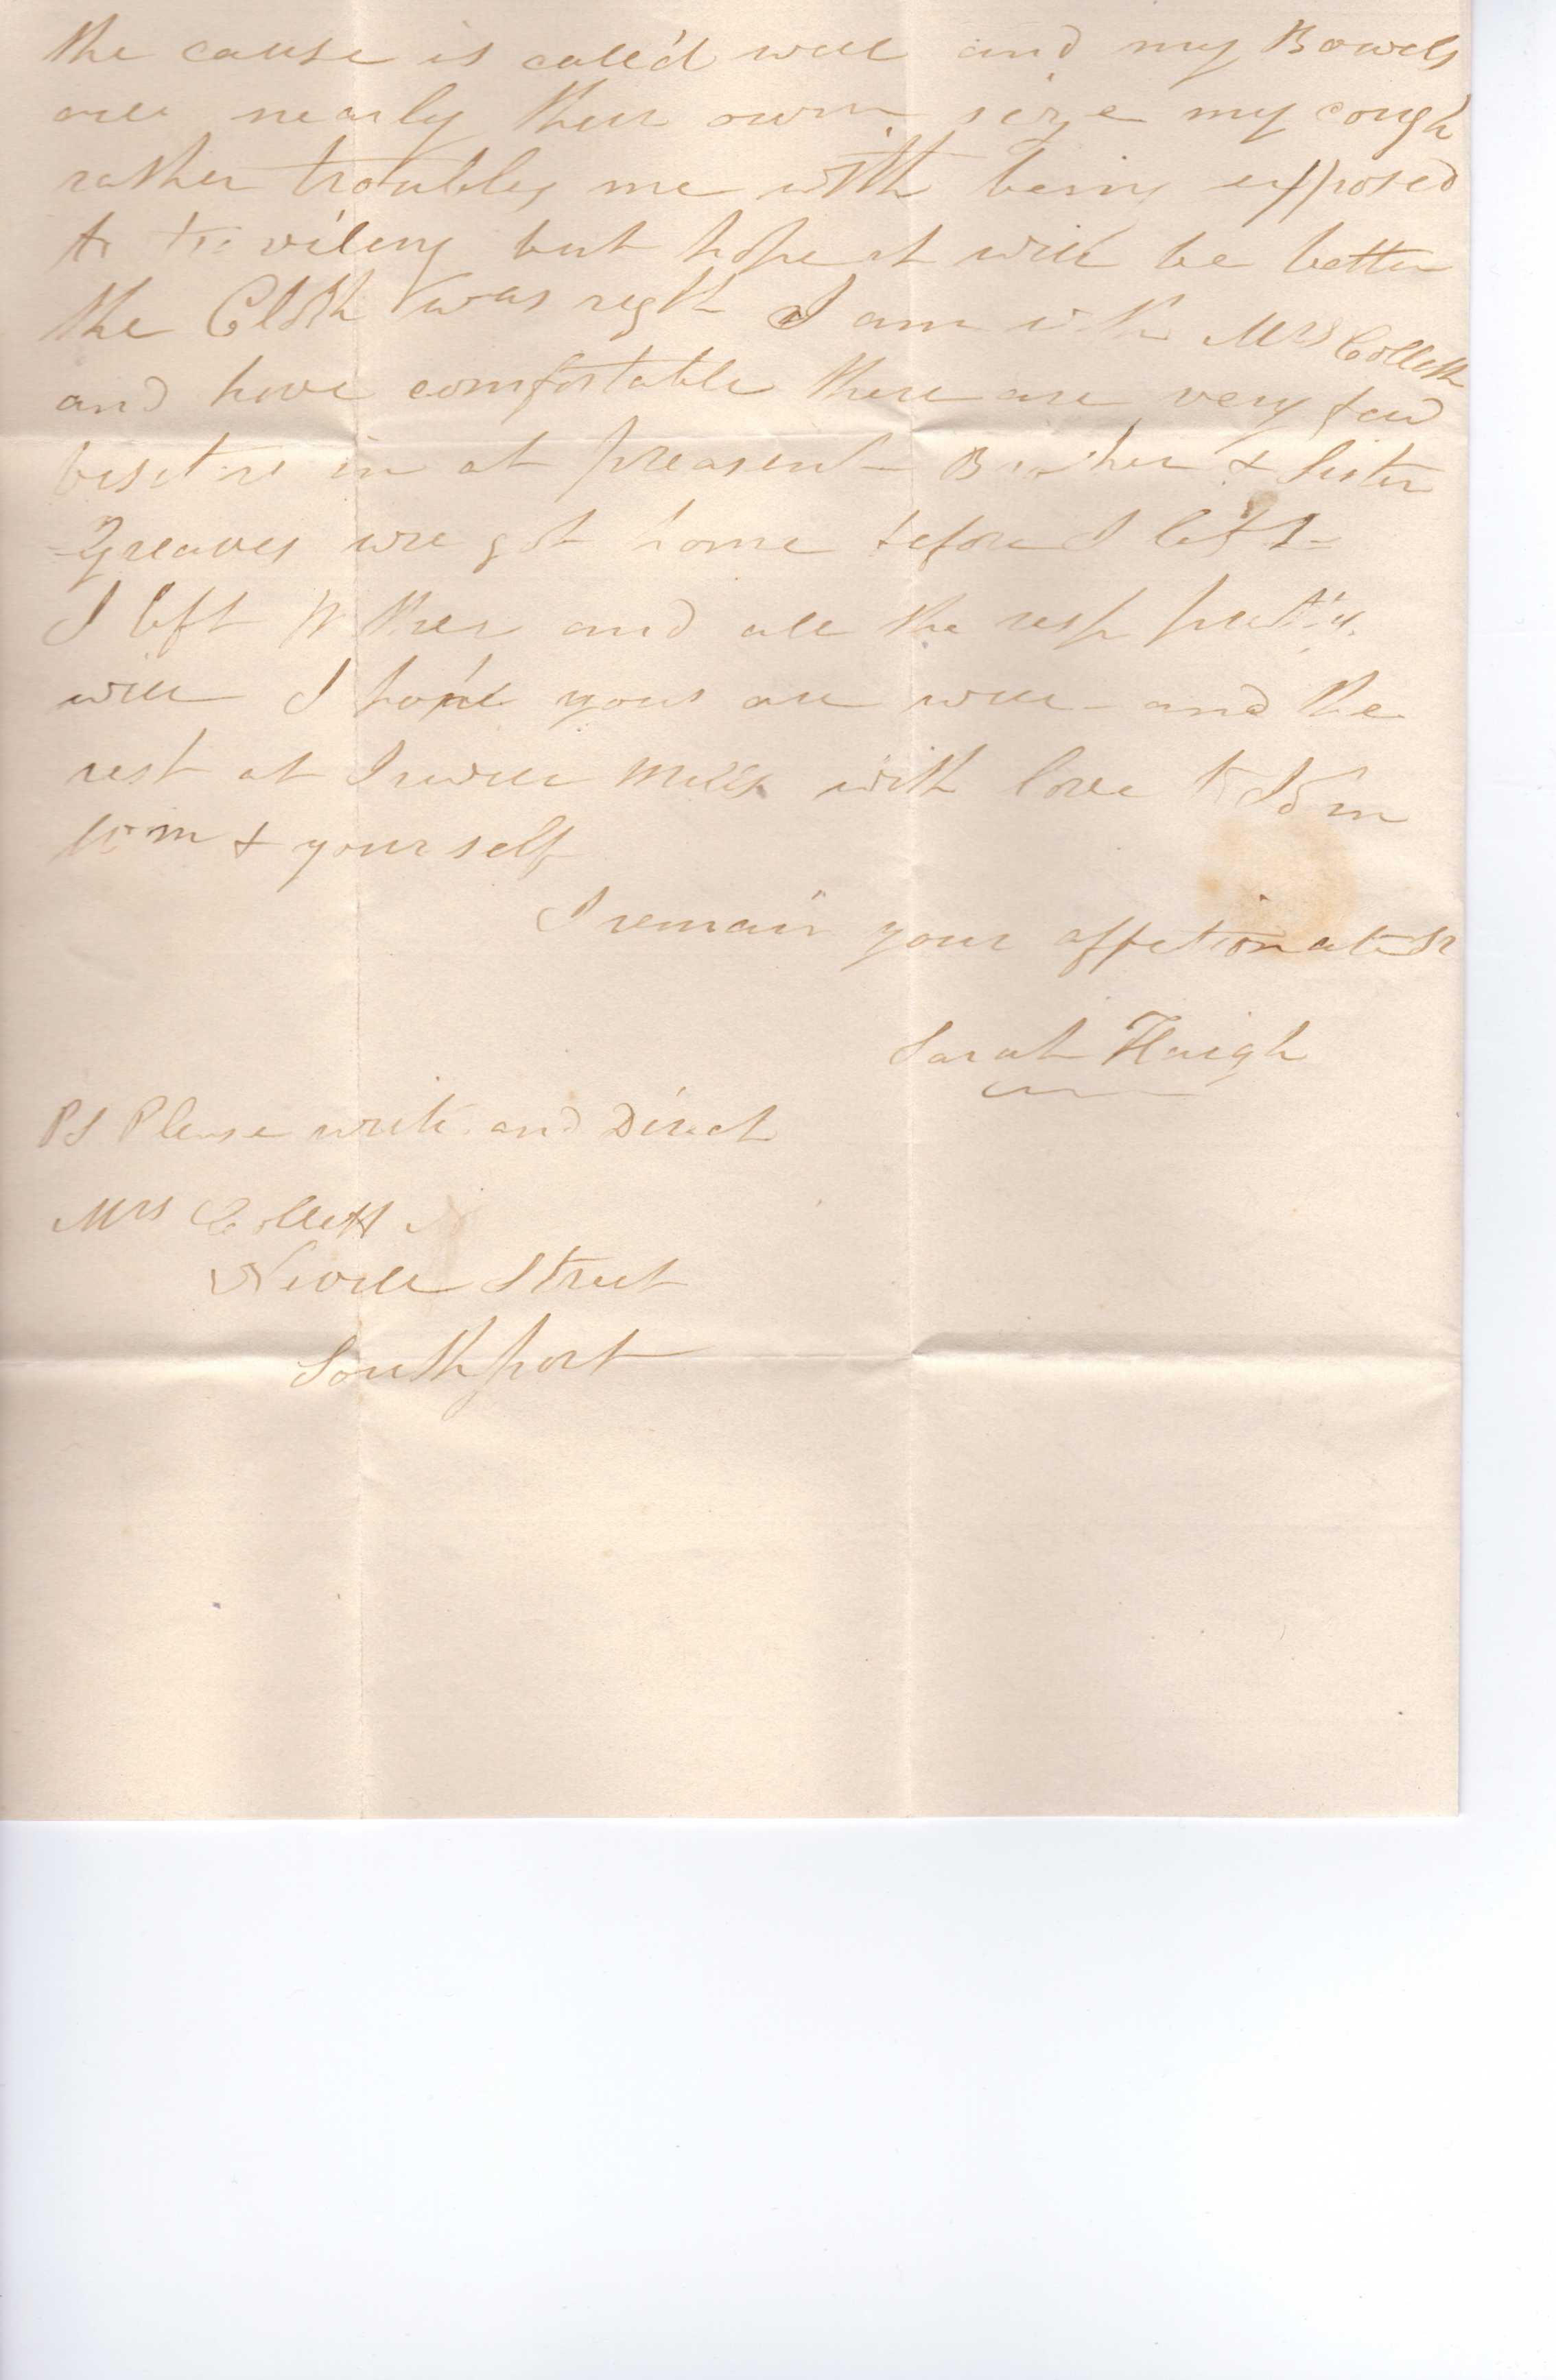 the cause is calle'd well and my Bowels
are nearly their own size my cough
rather troubles me with being exposed
to traviling but hope it will be better
the Cloth was regth I am with Mrs Collett
and have comfortable there are very few
visiters in at preasent Brother & Sister
Greaves were got home before I left
I left Father and all the rest prettey
well I hope yours are well and the
rest at Irwell Mills with love to
Wm & your self
I remain your affetionate Sr
Sarah Haigh
PS Please write and Direct
Mrs Collett
Nevill Street
Southport